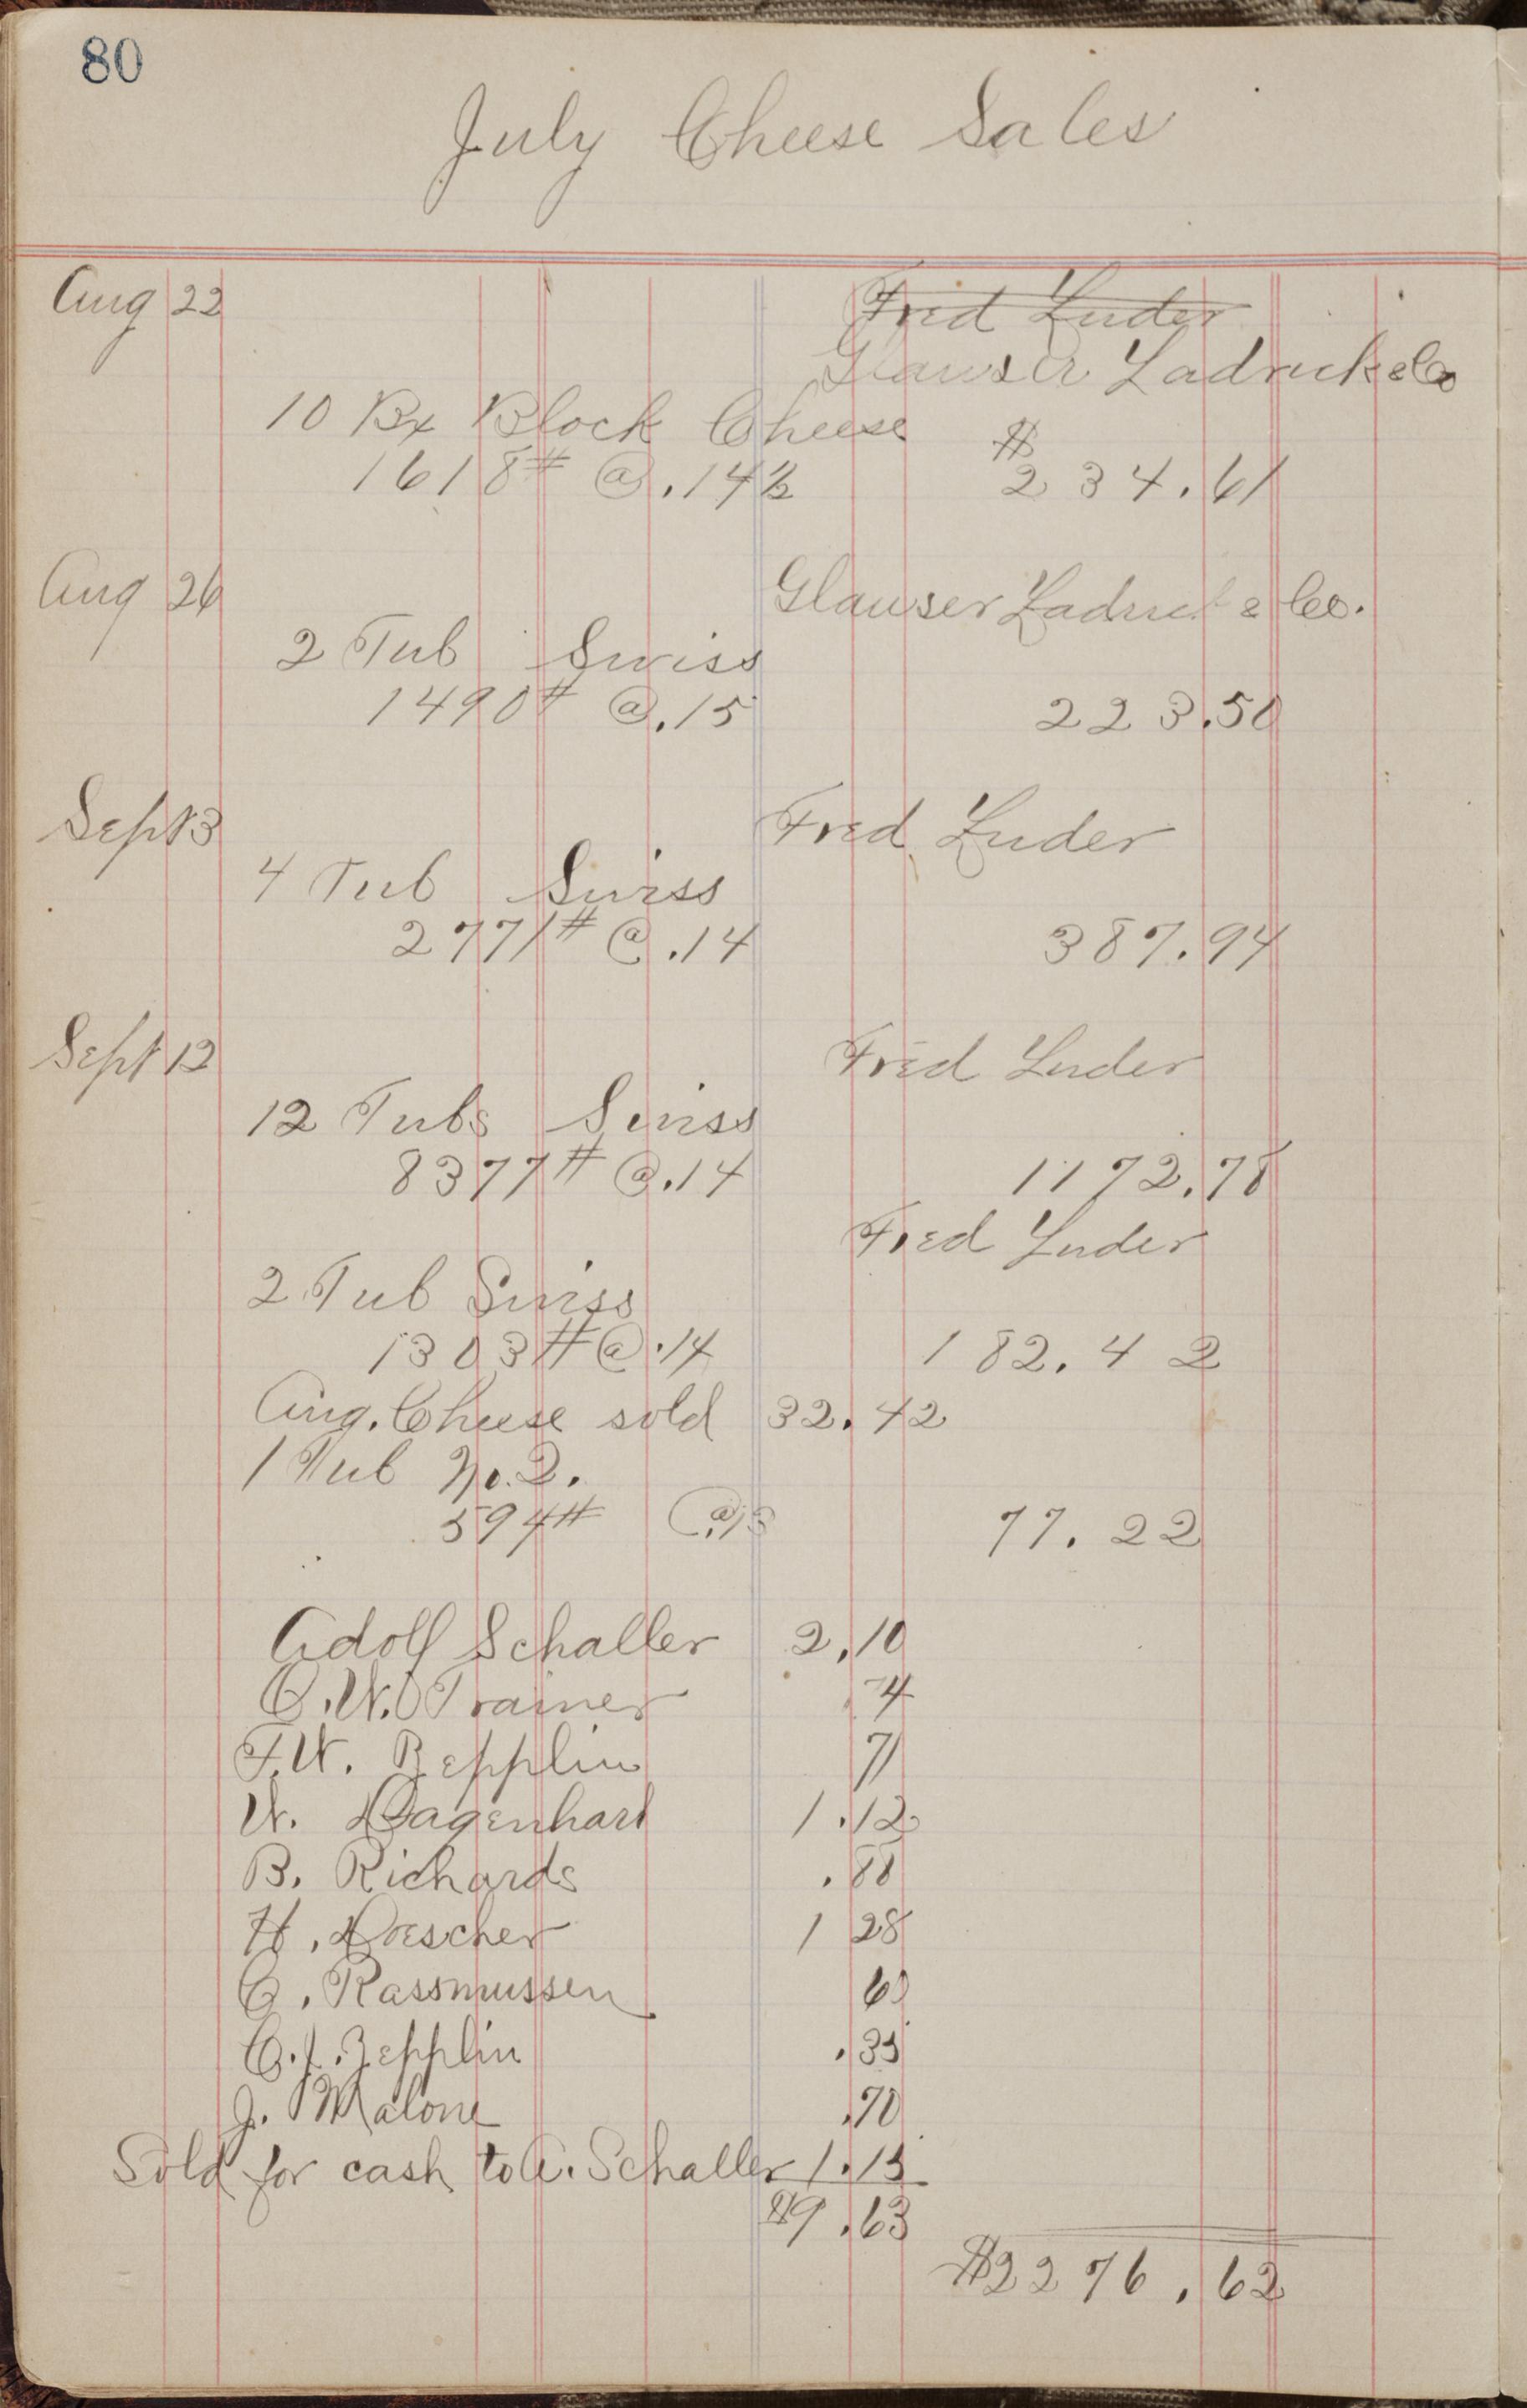 80
July Cheese Sales
Aug 22 Fred Luder
Glauser Ladrick & Co
10 Bx Block Cheese $
1618# @ .14½ 234.61
Aug 26 Glauser Ladrick & Co.
2 Tub Swiss
1490# @ .15 223.50
Sept 3 Fred Luder
4 Tub Swiss
2771# @ .14 387.94
Sept 12 Fred Luder
12 Tubs Swiss
8377# @ .14 1172.78
Fred Luder
2 Tub Swiss
1303# @ .14 182.42
Aug. Cheese sold 32.42
1 Tub No. 2.
594# @ .13 77.22
Adolf Schaller 2.10
C.W. Trainer 74
F.W. Zepplin 71
W. Dagenhart 1.12
B. Richards .88
H. Doescher 1 28
C. Rassmussen 60
C.J. Zepplin .35
J. Malone .70
Sold for cash to A. Schaller 1.15
$9.63
$2276.62